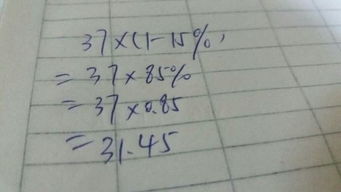 37×(1-15%)
=37×85%
=37×0.85
=31.45